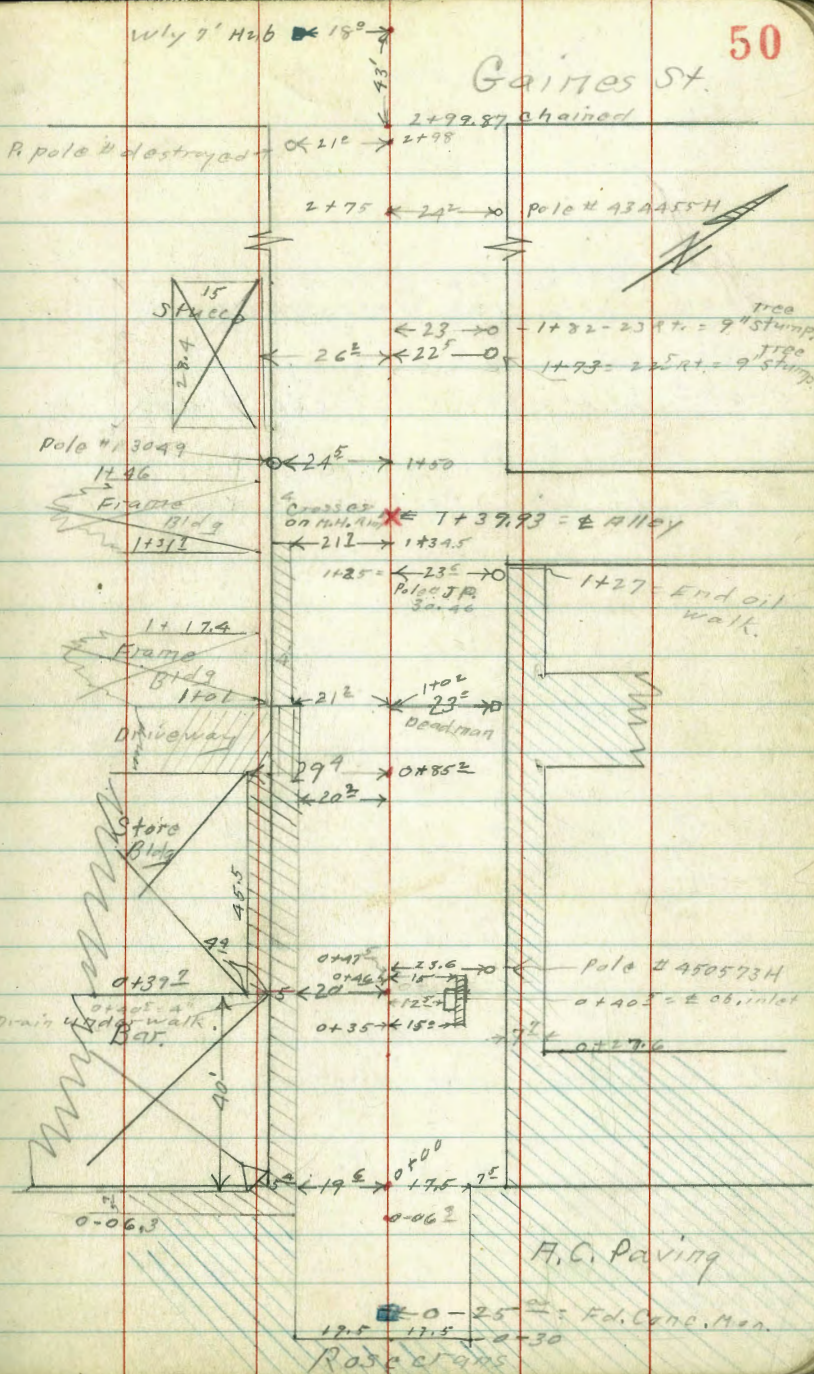 50
Wly 7' Hub 18⁰
43'
Gaines St.
2+99.87 chained
P. pole # destroyed 21² 2+98
2+75 24² Pole # 43AA55H
15
Stucco
28.4
23 1+82-23 Rt. = 9" Tree stump.
26² 22⁵ 1+73 = 22⁵ Rt. = 9" Tree stump
Pole # 13049 24⁵ 1+50
1+46
Frame
Bldg
1+31²
Crosses
on M.H. Rim
1+39.93 = ℄ Alley
21² 1+34.5
1+25 = 23⁵
Pole J.P.
30.46
1+27 = End oil
walk.
1+17.4
Frame
Bldg
1+01
21² 1+0² 23²
Deadman
Driveway
29⁴ 0+85²
20²
Store
Bldg
45.5
4⁴
0+47⁵ 23.6 Pole # 450573H
0+46⁵ 15
0+39² 5 20 12⁵ 0+40⁵ = ℄ ob. inlet
0+40⁵ - 4"
Drain under walk.
Bar.
0+35 15⁰
7² 0+27.6
40'
0+00
5⁴ 19⁶ 17.5 7⁵
0-06.3 0-06³
A.C. Paving
0-25⁰⁰ = Fd. Conc. Mon.
17.5 17.5 0-30
Rosecrans